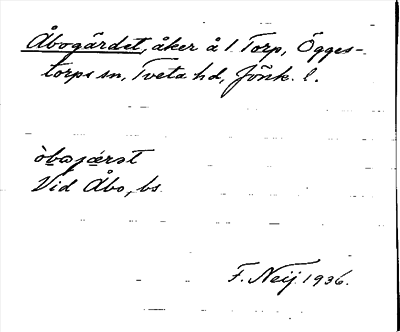 Åbogärdet, åker å 1. Torp, Ögges-
torps sn, Tveta hd, Jönk. l.
Vid Åbo, bs.
F. Neij 1936.